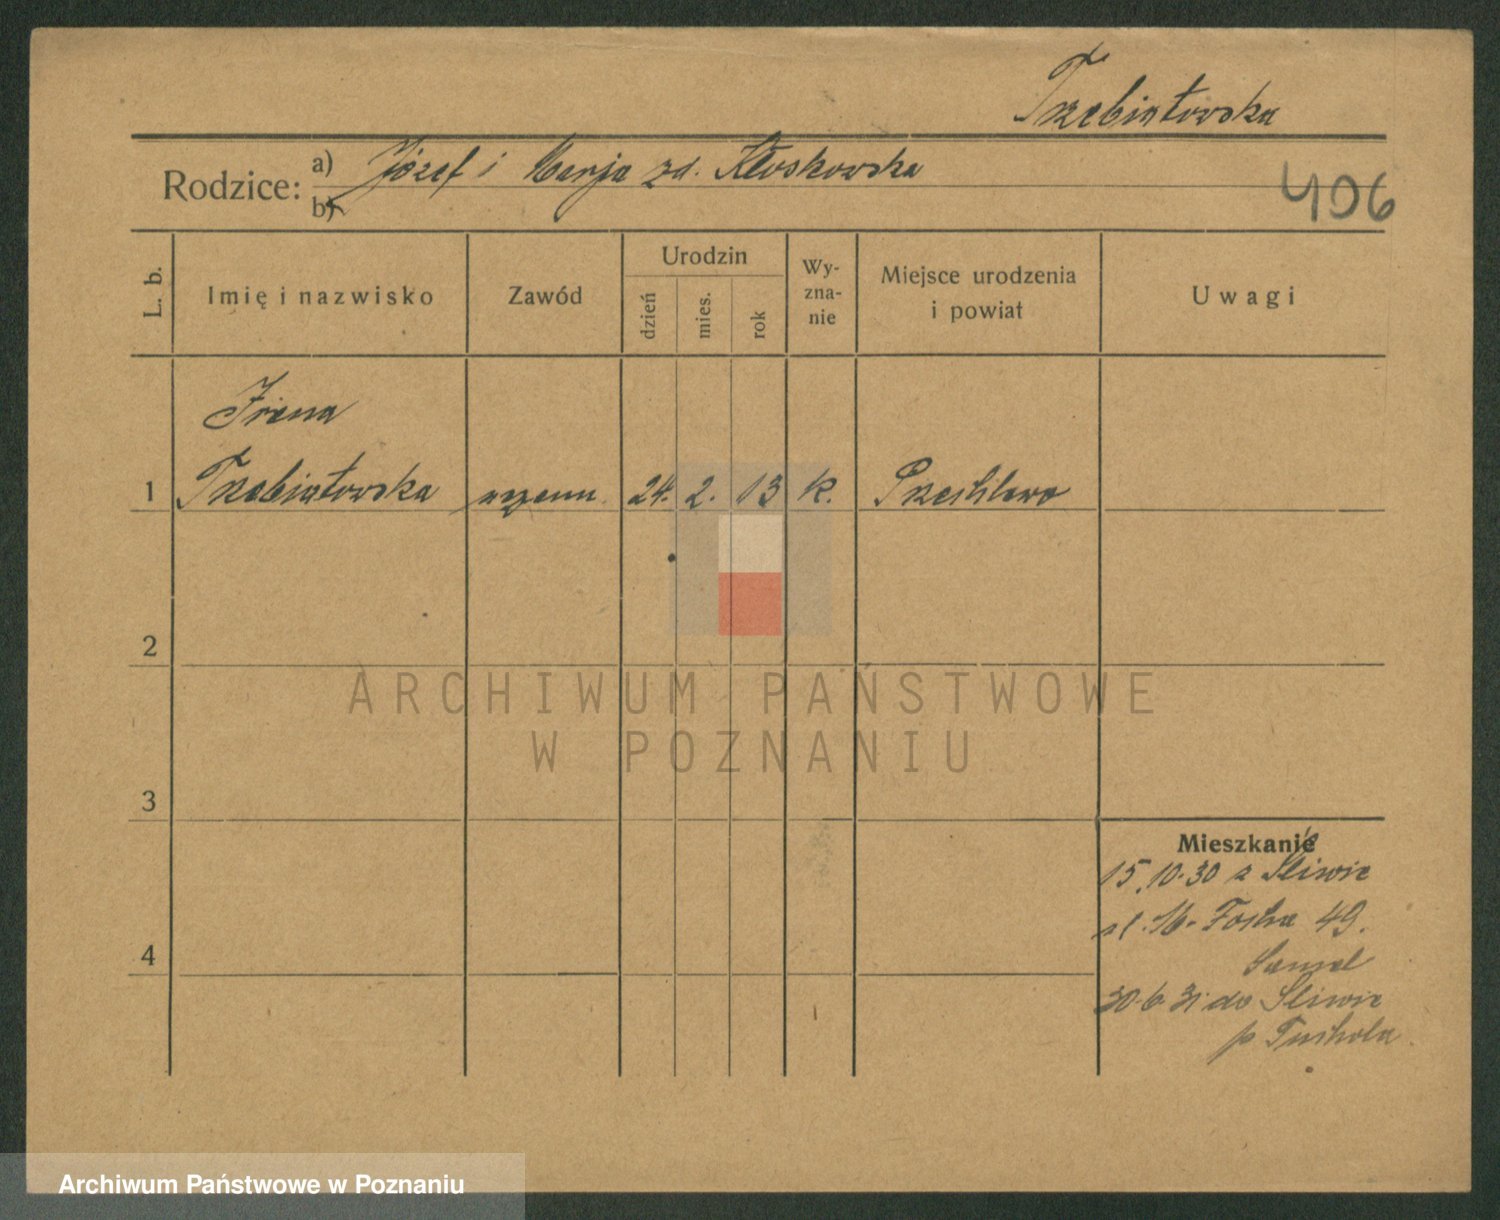 Trzebiatowska
Rodzice: a) Józef i Marja zd. Kłoskowska
b)
406
L. b.
Imię i nazwisko
Zawód
Urodzin
dzień
mies.
rok
Wy-
zna-
nie
Miejsce urodzenia
i powiat
Uwagi
Irena
1 Trzebiatowska uczenn. 24. 2. 13 k.
2
ARCHIWUM PAŃSTWOWE
W POZNANIU
3
4
Mieszkanie
15.10.30 z Śliwic
ul. M. Focha 49.
30.6.31 do Śliwic
p Tuchola
Archiwum Państwowe w Poznaniu